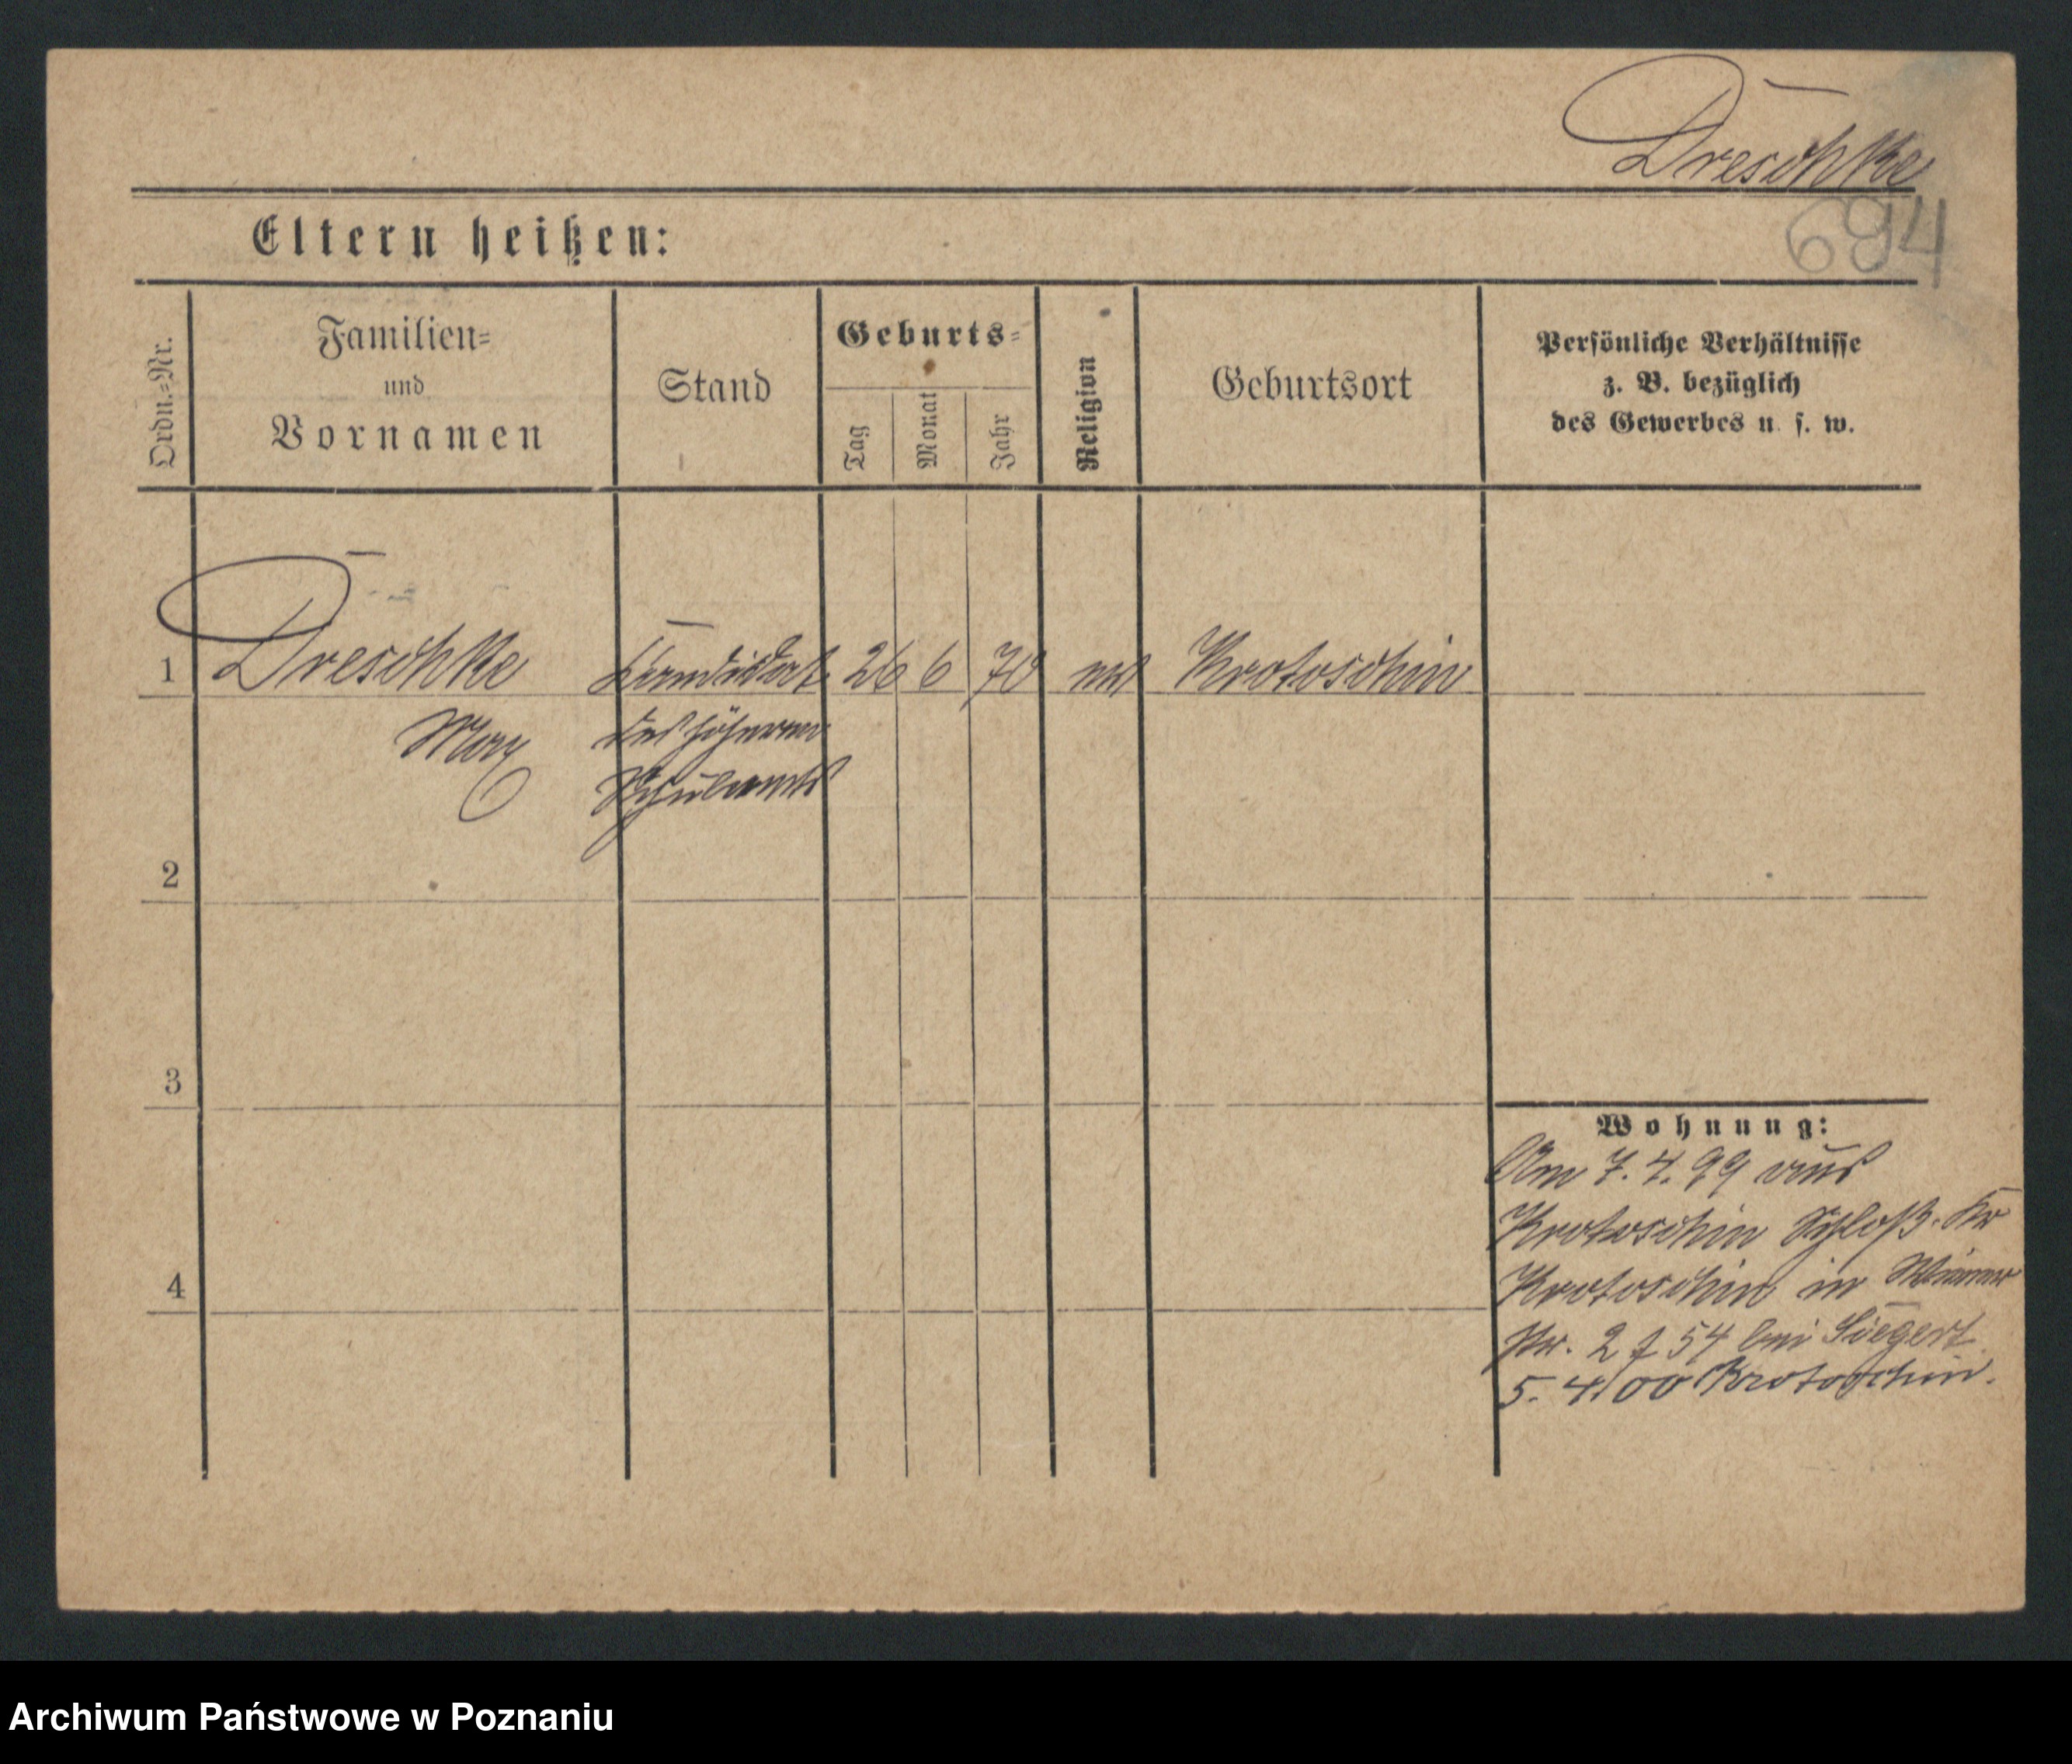 Dreschke
694
Eltern heißen:
Ordn.=Nr.
Familien=
und
Vornamen
Stand
Geburts=
Tag
Monat
Jahr
Religion
Geburtsort
Persönliche Verhältnisse
z. B. bezüglich
des Gewerbes u. s. w.
1 Dreschke Kandidat 26 6 70 Krotoschin
Max des höheren
Schulamts
2
3
4
Wohnung:
Am 7. 4. 99 aus
Krotoschin Schloß. Kr
Krotoschin in
Str. 2 54 bei Siegert
5. 4. 00 Krotoschin.
Archiwum Państwowe w Poznaniu